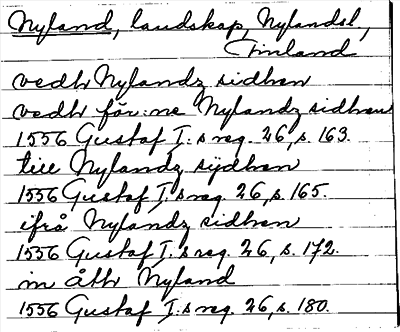 Nyland, landskap, Nylandsl,
Finland
vedh Nylandz sidhen
vedh för:ne Nylandz sidhen
1556 Gustaf I:s reg. 26, s. 163.
till Nylandz sijdhen
1556 Gustaf I:s reg. 26, s. 165.
ifrå Nylandz sidhen
1556 Gustaf I:s reg. 26, s. 172.
in åth Nyland
1556 Gustaf I:s reg. 26, s. 180.